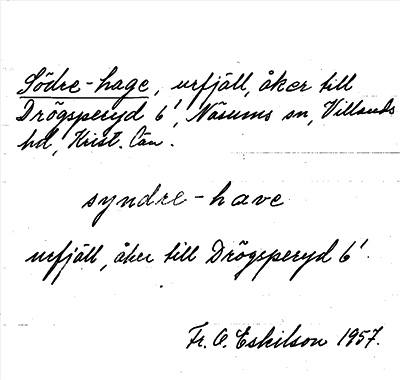 Södre-hage, urfjäll, åker till
Drögsperyd 6¹, Näsums sn, Villands
hd, Krist. län.
syndre-have
urfjäll, åker till Drögsperyd 6¹.
Fr. O. Eskilson 1957.